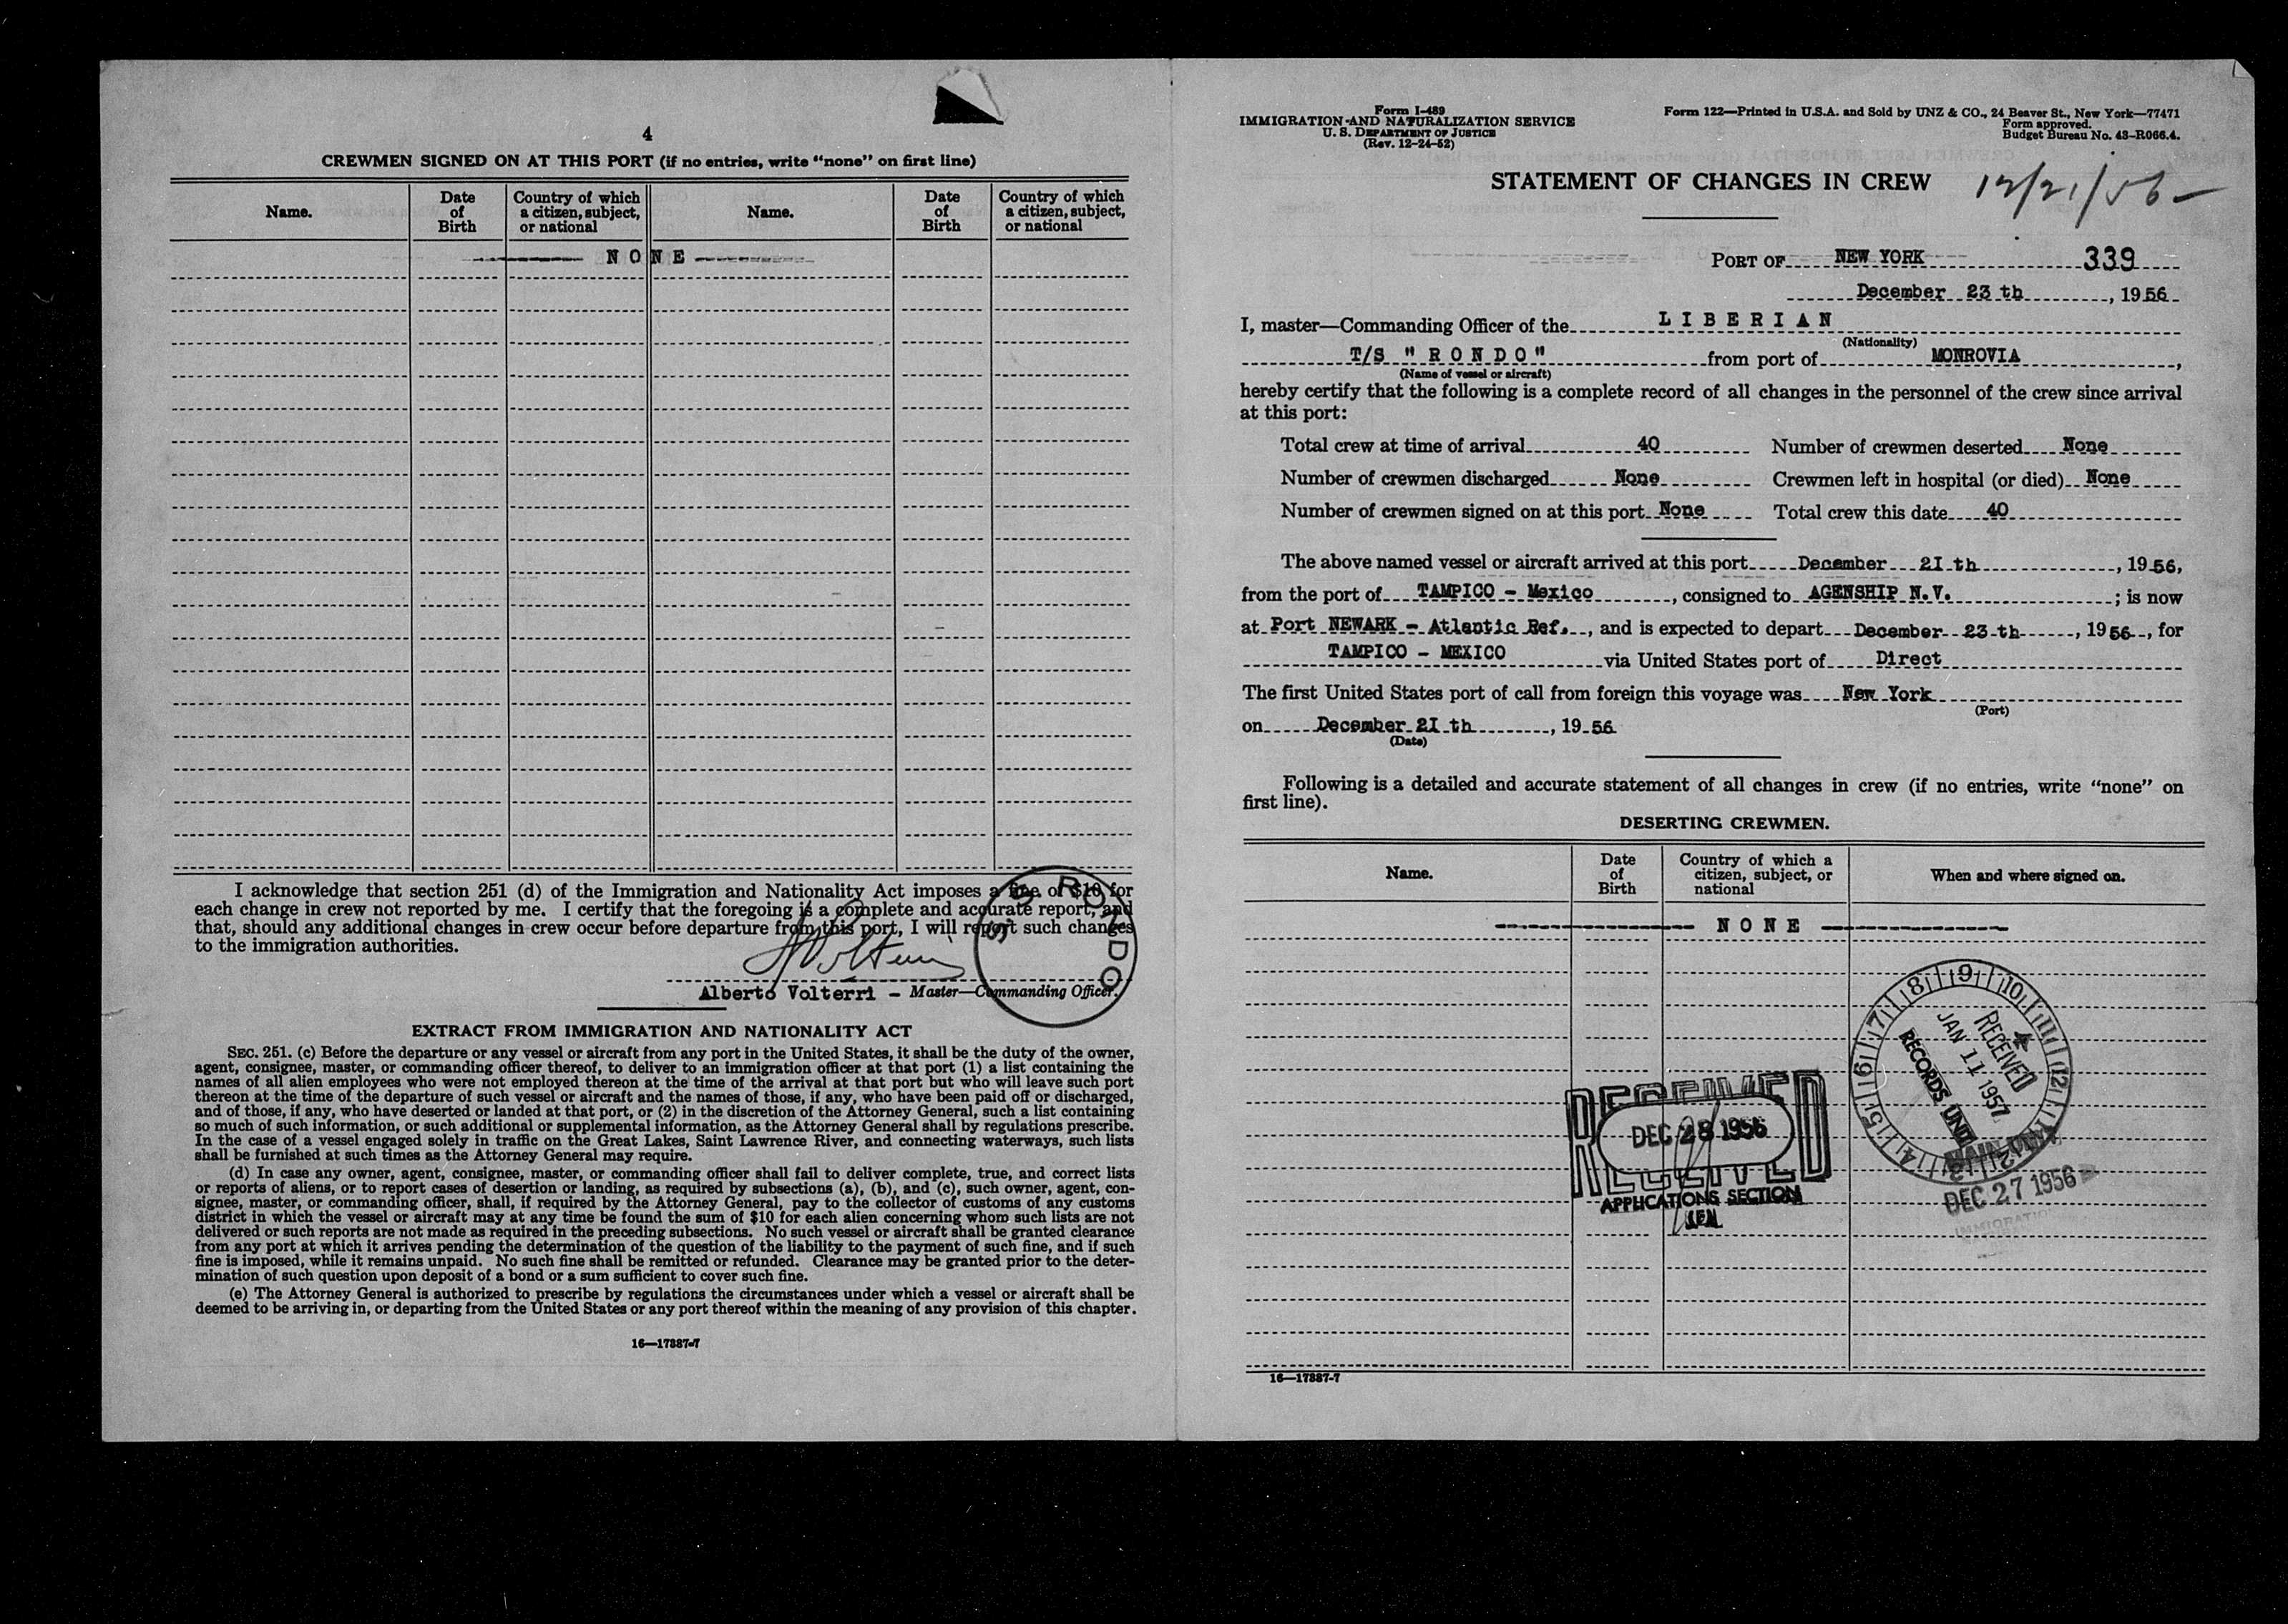 4
CREWMEN SIGNED ON AT THIS PORT (if no entries, write “none” on first line)
Name.
Date of Birth
Country of which a citizen, subject, or national
Name.
Date of Birth
Country of which a citizen, subject, or national
NONE
I acknowledge that section 251 (d) of the Immigration and Nationality Act imposes a fine of $10 for
each change in crew not reported by me. I certify that the foregoing is a complete and accurate report, and
that, should any additional changes in crew occur before departure from this port, I will report such changes
to the immigration authorities.
SS RONDO
Alberto Volterri - Master—Commanding Officer.
EXTRACT FROM IMMIGRATION AND NATIONALITY ACT
SEC. 251. (c) Before the departure or any vessel or aircraft from any port in the United States, it shall be the duty of the owner,
agent, consignee, master, or commanding officer thereof, to deliver to an immigration officer at that port (1) a list containing the
names of all alien employees who were not employed thereon at the time of the arrival at that port but who will leave such port
thereon at the time of the departure of such vessel or aircraft and the names of those, if any, who have been paid off or discharged,
and of those, if any, who have deserted or landed at that port, or (2) in the discretion of the Attorney General, such a list containing
so much of such information, or such additional or supplemental information, as the Attorney General shall by regulations prescribe.
In the case of a vessel engaged solely in traffic on the Great Lakes, Saint Lawrence River, and connecting waterways, such lists
shall be furnished at such times as the Attorney General may require.
(d) In case any owner, agent, consignee, master, or commanding officer shall fail to deliver complete, true, and correct lists
or reports of aliens, or to report cases of desertion or landing, as required by subsections (a), (b), and (c), such owner, agent, con-
signee, master, or commanding officer, shall, if required by the Attorney General, pay to the collector of customs of any customs
district in which the vessel or aircraft may at any time be found the sum of $10 for each alien concerning whom such lists are not
delivered or such reports are not made as required in the preceding subsections. No such vessel or aircraft shall be granted clearance
from any port at which it arrives pending the determination of the question of the liability to the payment of such fine, and if such
fine is imposed, while it remains unpaid. No such fine shall be remitted or refunded. Clearance may be granted prior to the deter-
mination of such question upon deposit of a bond or a sum sufficient to cover such fine.
(e) The Attorney General is authorized to prescribe by regulations the circumstances under which a vessel or aircraft shall be
deemed to be arriving in, or departing from the United States or any port thereof within the meaning of any provision of this chapter.
16—17887-7
Form I-489
IMMIGRATION AND NATURALIZATION SERVICE
U. S. DEPARTMENT OF JUSTICE
(Rev. 12-24-52)
Form 122—Printed in U.S.A. and Sold by UNZ & CO., 24 Beaver St., New York—77471
Form approved.
Budget Bureau No. 43-R066.4.
STATEMENT OF CHANGES IN CREW 12/21/56-
PORT OF NEW YORK 339
December 23 th, 1956
I, master—Commanding Officer of the LIBERIAN
(Nationality)
T/S "RONDO" from port of MONROVIA,
(Name of vessel or aircraft)
hereby certify that the following is a complete record of all changes in the personnel of the crew since arrival
at this port:
Total crew at time of arrival 40 Number of crewmen deserted None
Number of crewmen discharged None Crewmen left in hospital (or died) None
Number of crewmen signed on at this port None Total crew this date 40
The above named vessel or aircraft arrived at this port December 2I th, 1956,
from the port of TAMPICO - Mexico, consigned to AGENSHIP N.V.; is now
at Port NEWARK - Atlantic Ref., and is expected to depart December 23 th, 1956, for
TAMPICO - MEXICO via United States port of Direct
The first United States port of call from foreign this voyage was New York
(Port)
on December 2I th, 1956
(Date)
Following is a detailed and accurate statement of all changes in crew (if no entries, write “none” on
first line).
DESERTING CREWMEN.
Name.
Date of Birth
Country of which a citizen, subject, or national
When and where signed on.
NONE
RECEIVED
JAN 11 1957
RECORDS UNIT
RECEIVED
DEC 28 1956
RECEIVED
APPLICATIONS SECTION
DEC 27 1956
IMMIGRATION
16—17887-7